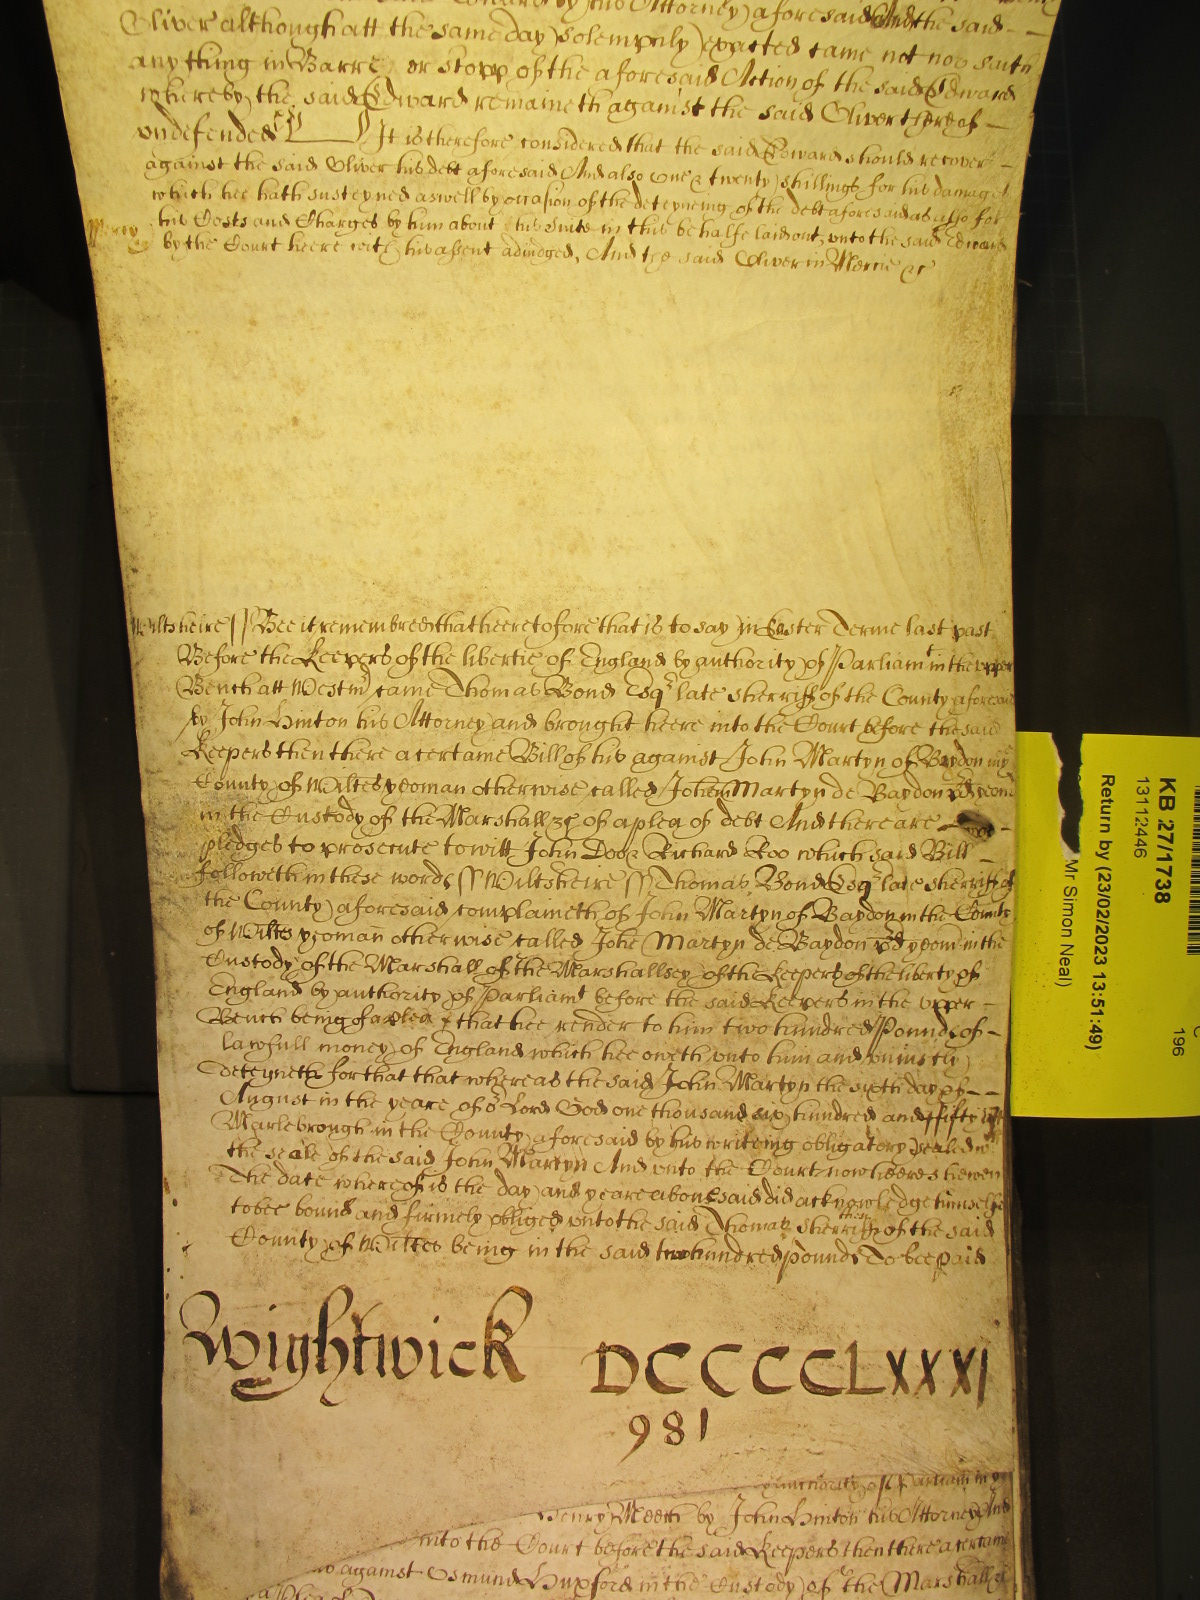 Edward by his Attorney aforesaid And the said
Oliver although att the same day solempnly exacted came not nor saith
any thing in Barre or stopp of the aforesaid Action of the said Edward
whereby the said Edward remaineth against the said Oliver thereof
undefended It is therefore considered that the said Edward should recover
against the said Oliver his debt aforesaid And also one & twenty shillings for his damages
which hee hath susteyned aswell by occasion of the deteyneing of the debt aforesaid as also for
his Costs and Charges by him about his Suite in this behalfe laid out, unto the said Edward
Mercy
by the Court heere with his assent adiudged, And the said Oliver in Mercie &c
Wiltsheire // Bee it remembred that heeretofore that is to say in Easter Terme last past
Before the Keepers of the libertie of England by authority of Parliamt in the upper
Bench att Westmr came Thomas Bond Esqr late sherriff of the County aforesaid
by John Hinton his Attorney and brought heere into the Court before the said
Keepers then there a certaine Bill of his against John Martyn of Baydon in ye
County of Wiltes yeoman otherwise called Johem Martyn de Baydon yeom
in the Custody of the Marshall &c of a plea of debt And there are
pledges to prosecute to witt John Doo & Richard Roo which said Bill
followeth in these words // Wiltsheire // Thomas Bond Esqr late sherriff of
the County aforesaid complaineth of John Martyn of Baydon in the County
of Wiltes yeoman otherwise called Johem Martyn de Baydon yeom in the
Custody of the Marshall of the Marshallsey of the Keepers of the liberty of
England by authority of Parliamt before the said Keepers in the upper
Bench being of a plea that hee render to him two hundred Pounds of
lawfull money of England which hee oweth unto him and uniustly
deteyneth for that that whereas the said John Martyn the sixth day of
August in the yeare of or Lord God one thousand six hundred and fifty att
Marlebrough in the County aforesaid by his writeing obligatory sealed wth
the seale of the said John Martyn And unto the Court now heere shewen
The date whereof is the day and yeare abovesaid did acknowledge himselfe
to bee bound and firmely obliged unto the said Thomas then sherriff of the said
County of Wiltes being in the said two hundred pounds To bee paid
Wightwick DCCCCLXXXI
981
authority of Parliam in ye
Henry Meech by John Hinton his Attorney And
into the Court before the said Keepers then there a certaine
against Osmund Huxford in the Custody of the Marshall &c
a Plea
KB 27/1738
13112446
Return by (23/02/2023 13:51:49)
Mr Simon Neal)
196